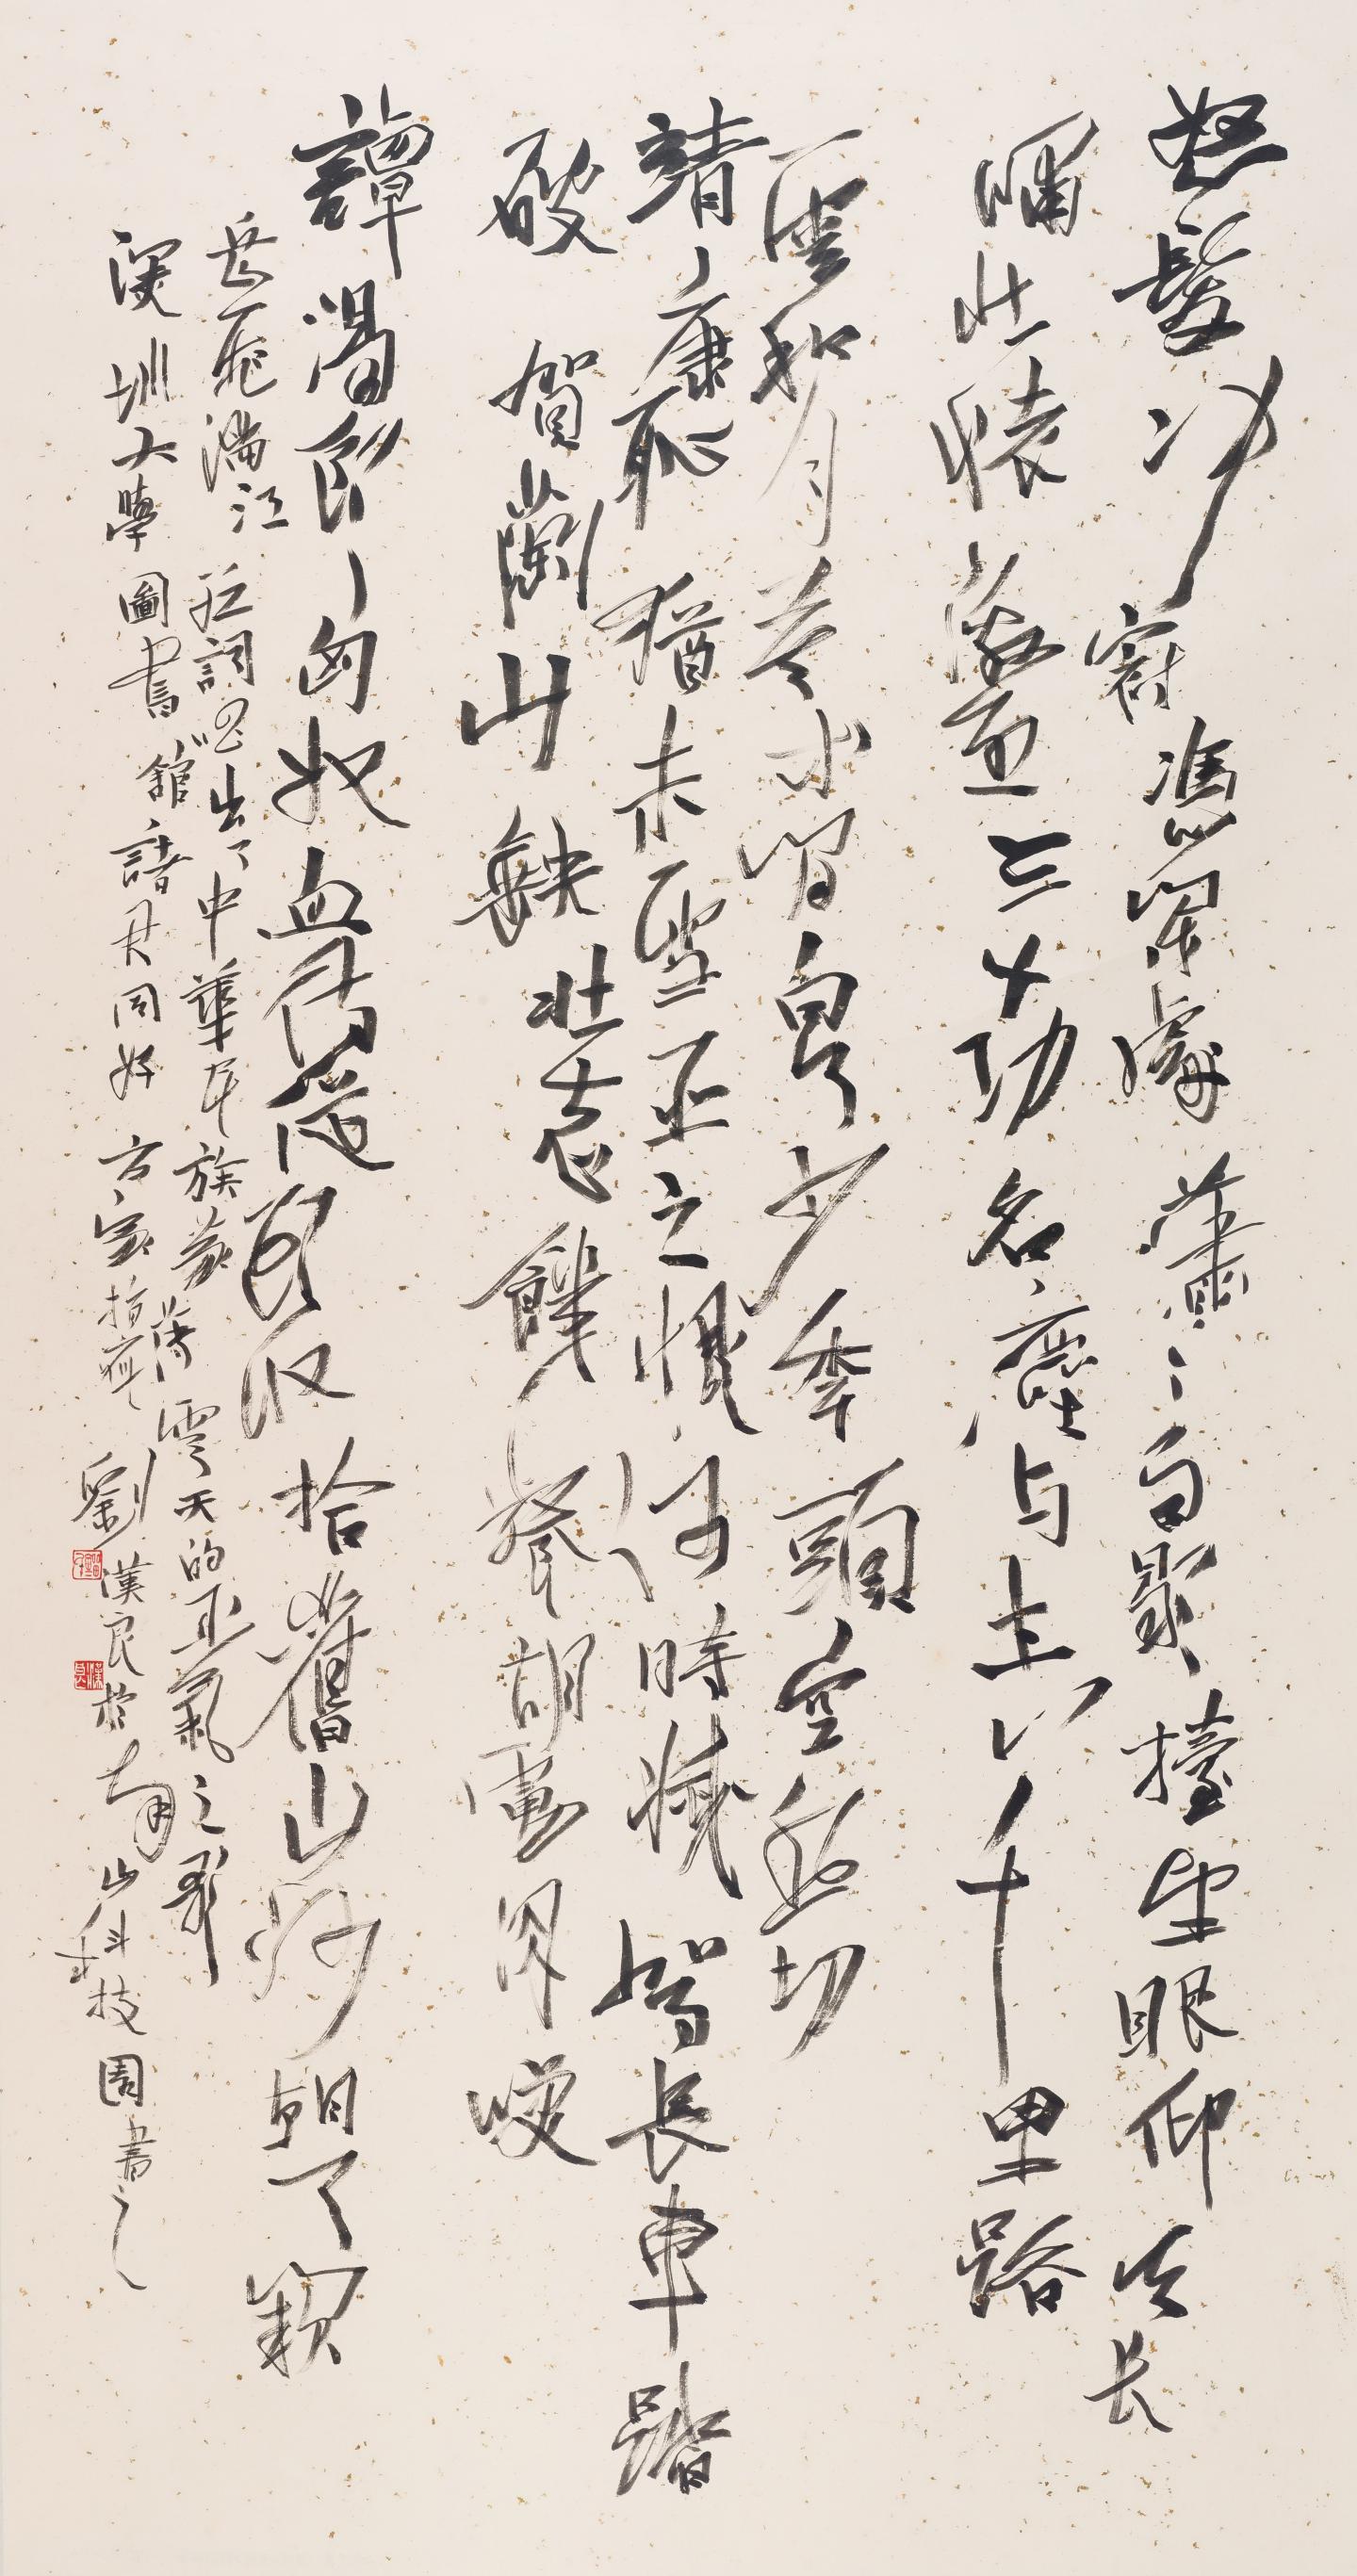 怒髮冲冠憑闌處蕭〻雨歇擡望眼仰天长
嘯壯懷激烈三十功名塵与土八千里路
雲和月莫等閒白了少年頭空悲切
靖康恥猶未雪臣子憾何時滅駕長車踏
破賀蘭山缺壯志饑餐胡虜肉笑
譚渴飲匈奴血待從頭收拾舊山河朝天闕
岳飛滿江紅詞唱出了中華民族豪薄雲天的正氣之歌
深圳大學圖書館諸君同好方家指疵劉漢良於南山科技園書之